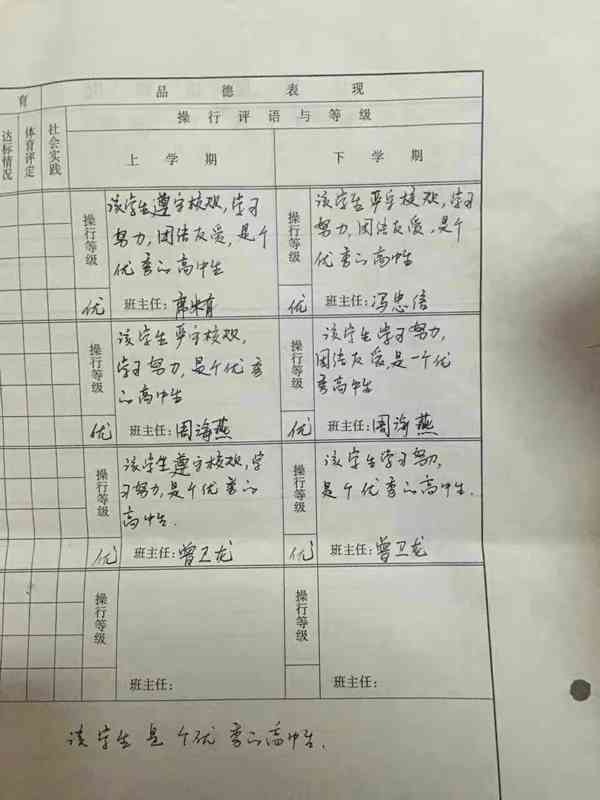 育
品德表现
达标情况
体育评定
社会实践
操行评语与等级
上学期
下学期
操行等级
优
该学生遵守校规,学习
努力,团结友爱,是个
优秀的高中生
班主任:
操行等级
优
该学生严守校规,学习
努力,团结友爱,是个
优秀的高中生
班主任:冯忠信
操行等级
优
该学生严守校规,
学习努力,是个优秀
的高中生
班主任:周海燕
操行等级
优
该学生学习努力,
团结友爱,是一个优
秀高中生
班主任:周海燕
操行等级
优
该学生遵守校规,学
习努力,是个优秀的
高中生.
班主任:曾卫龙
操行等级
优
该学生学习努力,
是个优秀的高中生.
班主任:曾卫龙
操行等级
班主任:
操行等级
班主任:
该学生是个优秀的高中生.